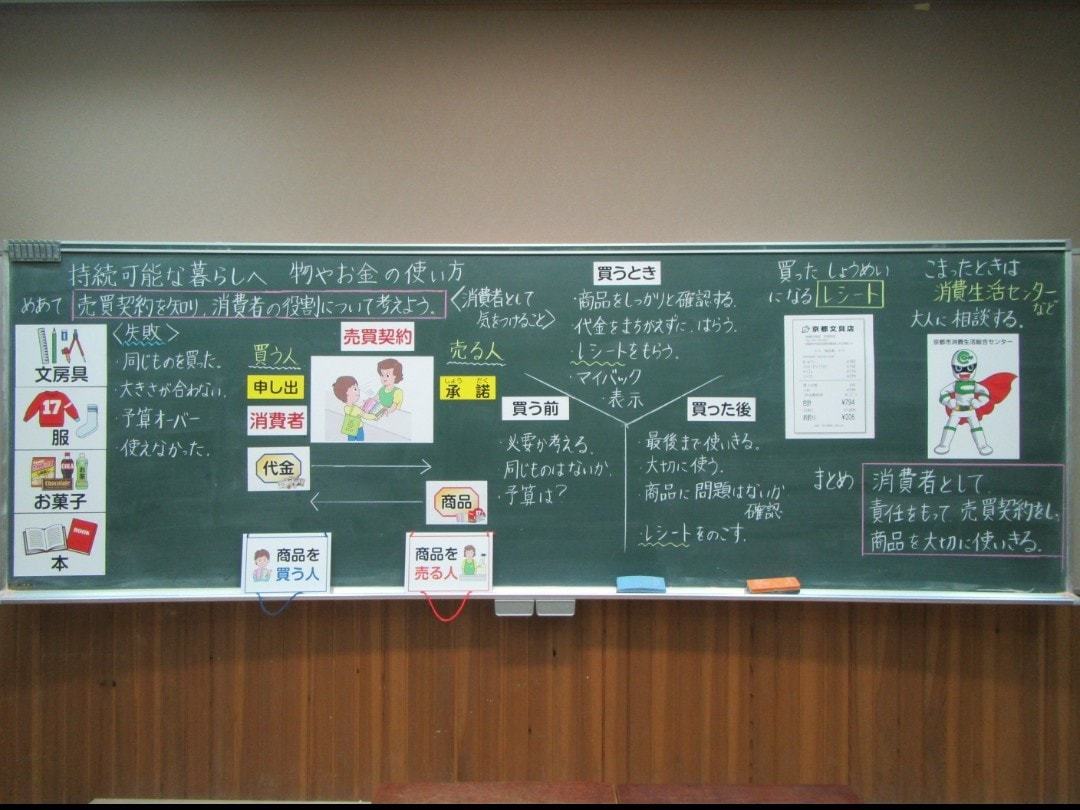 持続可能な暮らしへ 物やお金の使い方
めあて 売買契約を知り、消費者の役割について考えよう。
文房具
服
17
お菓子
COLA
お茶
Chocolate
本
BOOK
<失敗>
・同じものを買った。
・大きさが合わない。
・予算オーバー
・使えなかった。
売買契約
買う人
申し出
消費者
代金
売る人
しょう だく
承 諾
商品
商品を
買う人
商品を
売る人
<消費者として
気をつけること>
買うとき
・商品をしっかりと確認する。
・代金をまちがえずに、はらう。
・レシートをもらう。
・マイバック
・表示
買う前
・必要か考える。
・同じものはないか。
・予算は?
買った後
・最後まで使いきる。
・大切に使う。
・商品に問題はないか
確認
・レシートをのこす。
買ったしょうめい
になるレシート
京都文具店
合計 ¥794
¥206
こまったときは
消費生活センターなど
大人に相談する。
京都市消費生活総合センター
まとめ
消費者として
責任をもって売買契約をし、
商品を大切に使いきる。